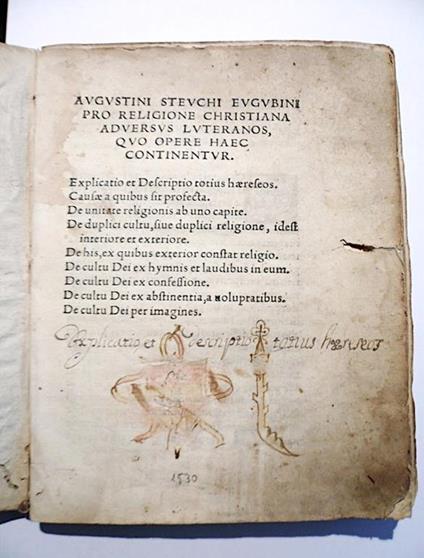 AVGVSTINI STEVCHI EVGVBINI
PRO RELIGIONE CHRISTIANA
ADVERSVS LVTERANOS,
QVO OPERE HAEC
CONTINENTVR.
Explicatio et Descriptio totius hæreseos.
Causæ a quibus sit profecta.
De unitate religionis ab uno capite.
De duplici cultu, siue duplici religione, idest
interiore et exteriore.
De his, ex quibus exterior constat religio.
De cultu Dei ex hymnis et laudibus in eum.
De cultu Dei ex confessione.
De cultu Dei ex abstinentia, a uoluptatibus.
De cultu Dei per imagines.
Explicatio et descriptio totius hæreseos
1530